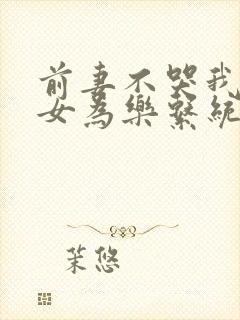 前妻不哭我
女為樂繫統
茉悠